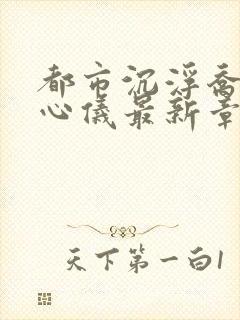 都市沉浮乔
心儀最新章
天下第一白1